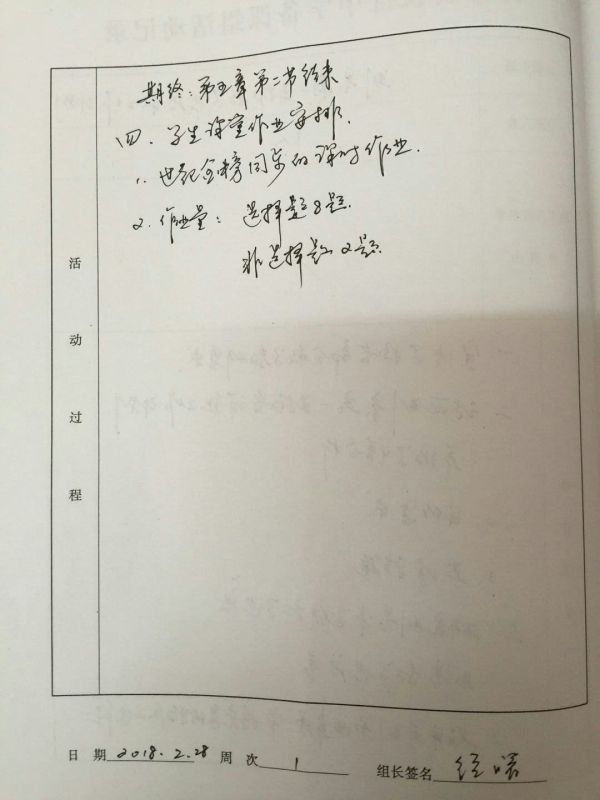 期终：第五章第二节结束
四、学生课堂作业安排.
1. 世纪金榜同步的课时作业.
2. 作业量：选择题8题.
非选择题2题.
活动过程
日期 2018.2.28 周次 1 组长签名